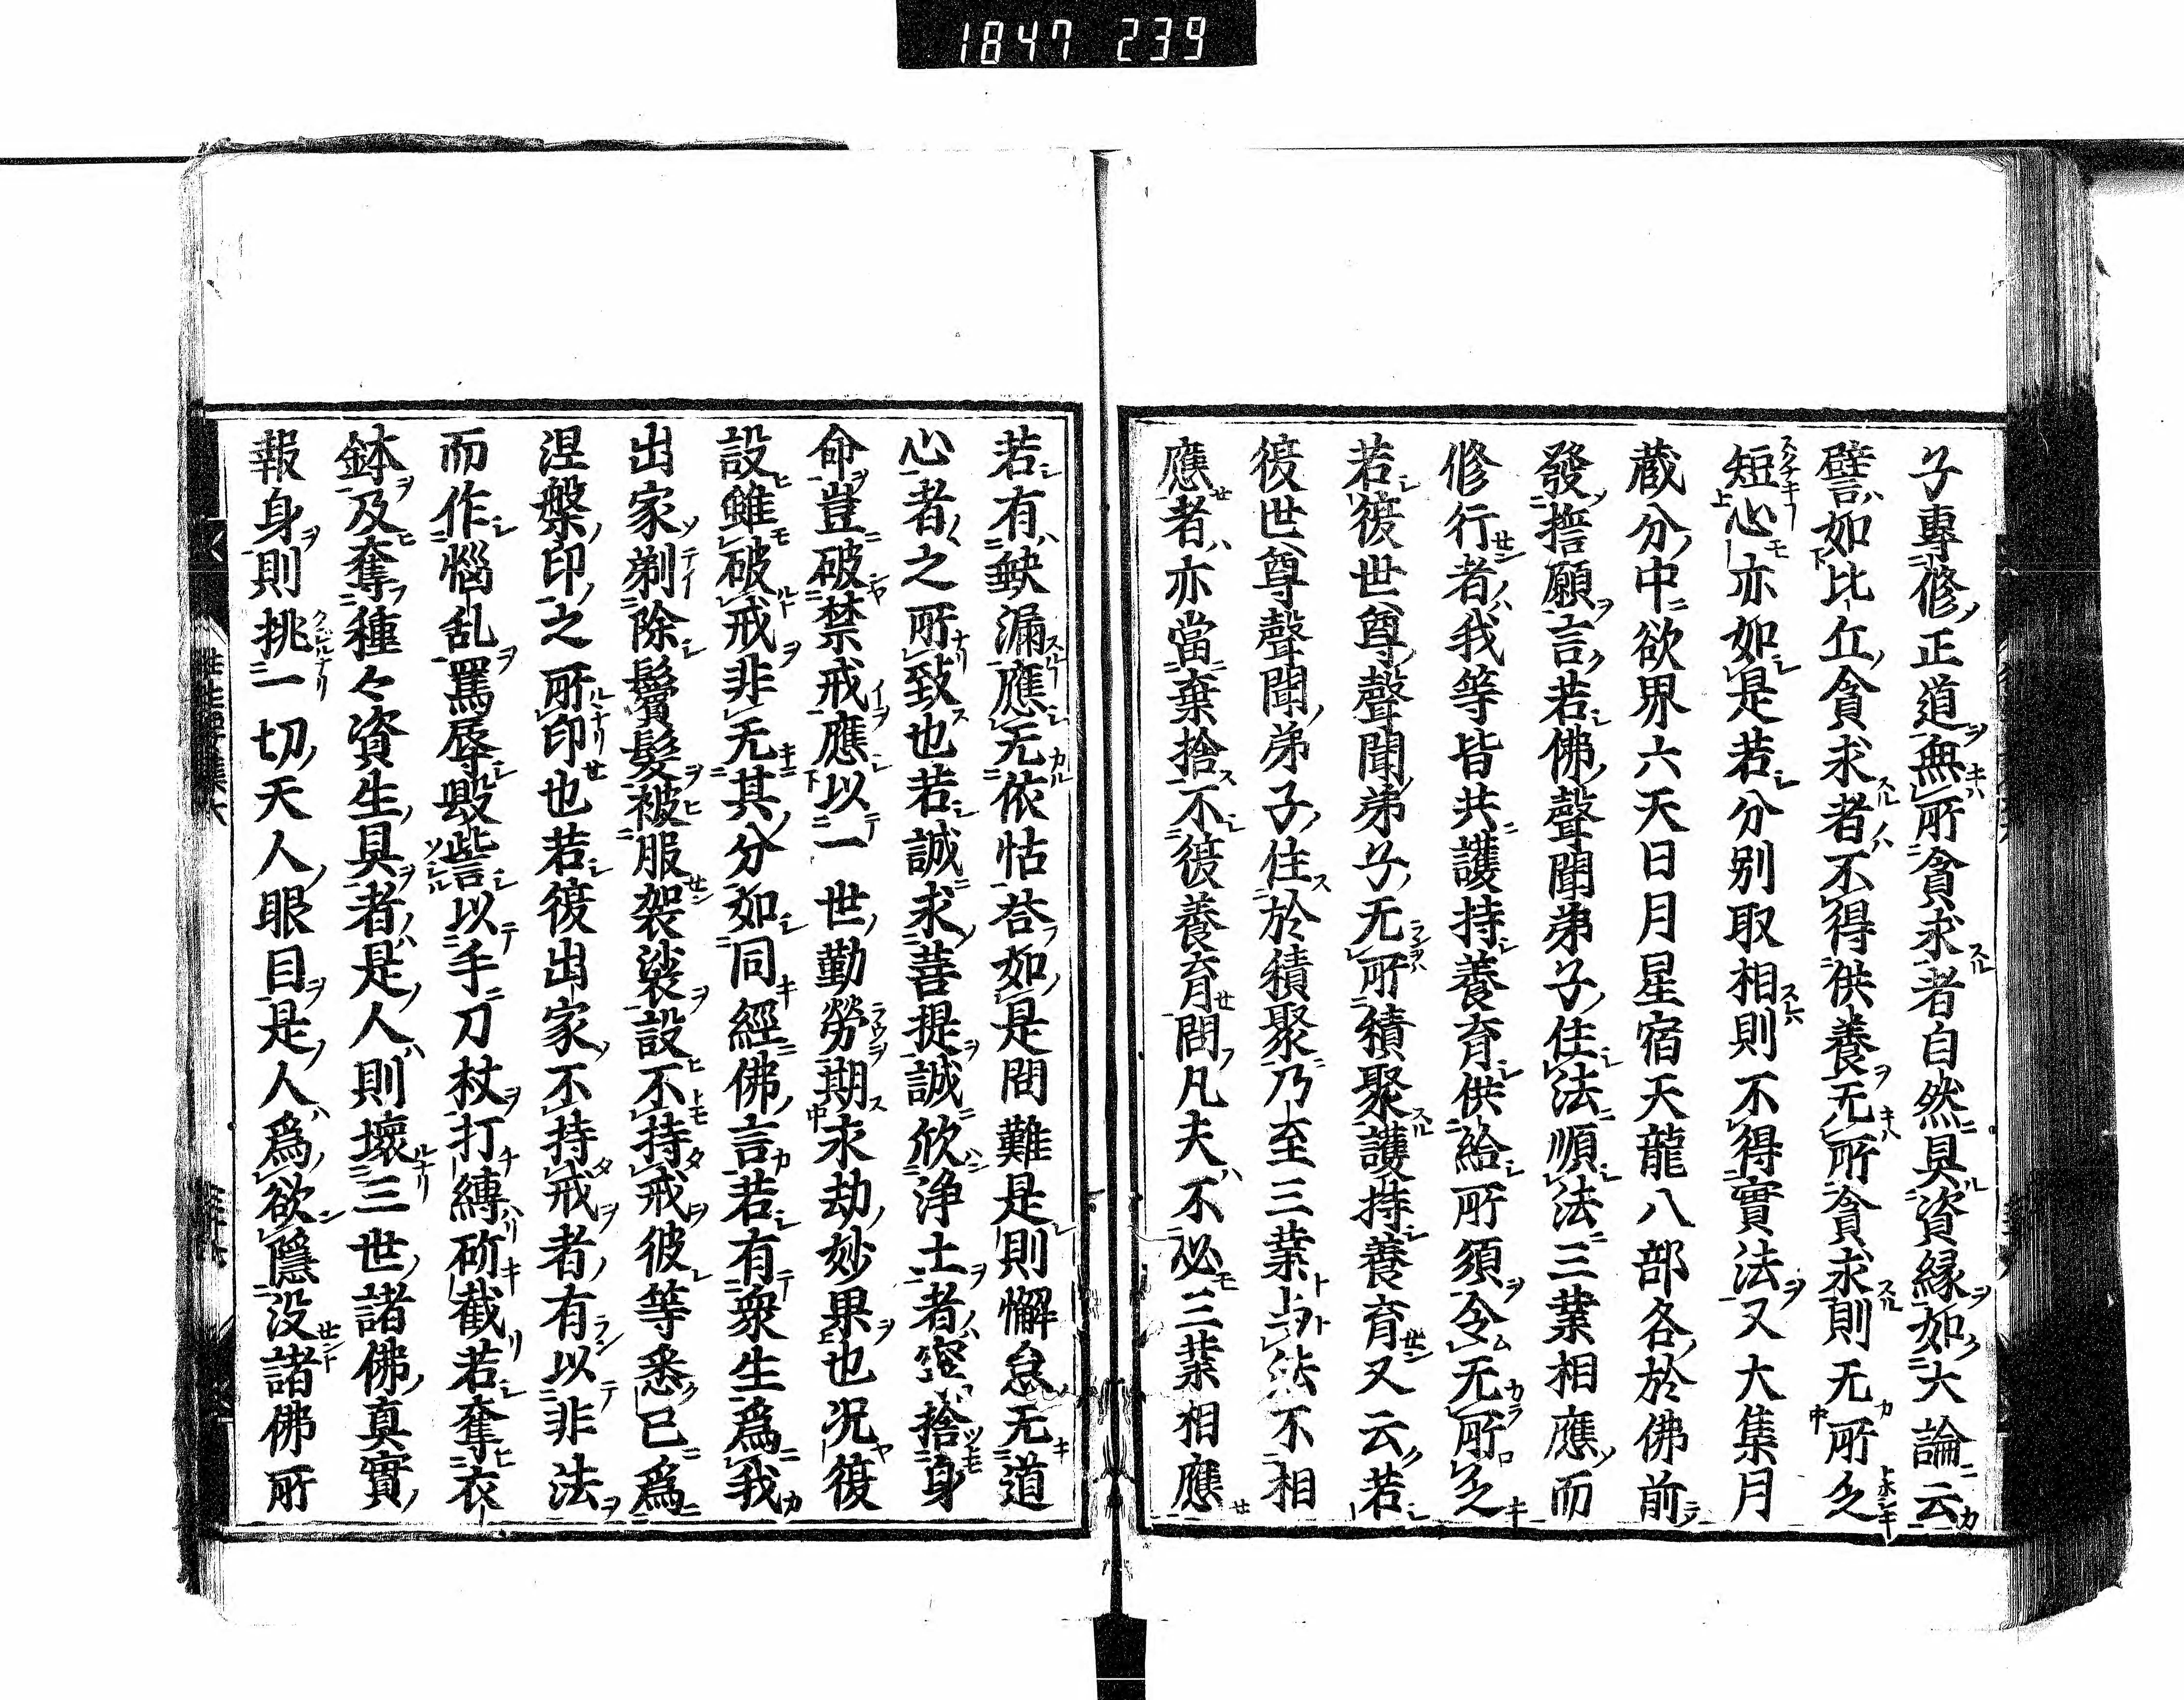 1847 239
子專修正道無所貪求者自然具資縁如大論云
譬如比丘貪求者不得供養无所貪求則无所乏
短心亦如是若分別取相則不得實法又大集月
蔵分中欲界六天日月星宿天龍八部各於佛前
發誓願言若佛聲聞弟子住法順法三業相應而
修行者我等皆共護持養育供給所須令无所乏
若復世尊聲聞弟子无所積聚護持養育又云若
復世尊聲聞弟子住於積聚乃至三業与法不相
應者亦當棄捨不復養育問凡夫不必三業相應
若有缺漏應无依怙荅如是問難是則懈怠无道
心者之所致也若誠求菩提誠欣浄土者寧捨身
命豈破禁戒應以一世勤勞期永劫妙果也況復
設雖破戒非无其分如同經佛言若有衆生爲我
出家剃除鬚髮被服袈裟設不持戒彼等悉已爲
涅槃印之所印也若復出家不持戒者有以非法
而作惱乱罵辱毀訾以手刀杖打縛斫截若奪衣
鉢及奪種々資生具者是人則壞三世諸佛真實
報身則挑一切天人眼目是人爲欲隱没諸佛所